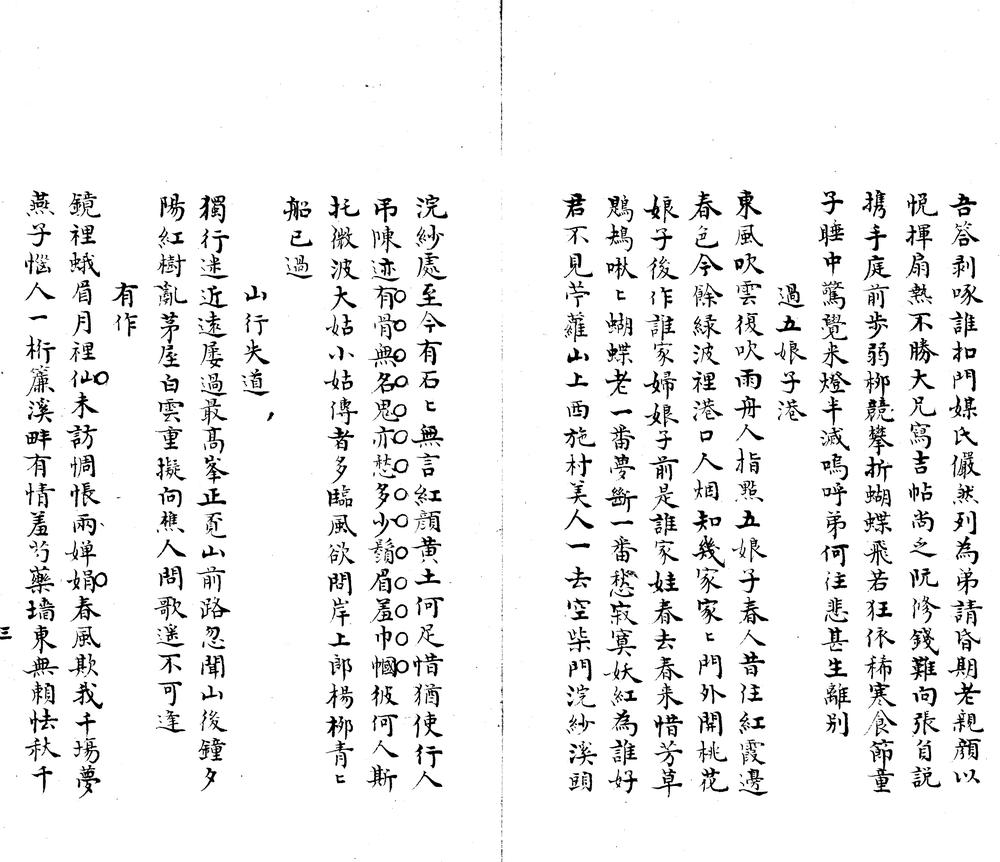 吾答剥啄誰扣門媒氏儼然列為弟請昏期老親顔以
悦揮扇熱不勝大兄寫吉帖尚之阮修錢難向張負説
携手庭前步弱柳競攀折蝴蝶飛若狂依稀寒食節童
子睡中驚覺来燈半滅嗚呼弟何往悲甚生離别
過五娘子港
東風吹雲復吹雨舟人指點五娘子春人昔住紅霞邊
春色今餘緑波裡港口人烟知幾家家〻門外開桃花
娘子後作誰家婦娘子前是誰家娃春去春来惜芳草
鶗鴂啾〻蝴蝶老一番夢斷一番愁寂寞妖紅為誰好
君不見苧蘿山上西施村美人一去空柴門浣紗溪頭
浣紗處至今有石〻無言紅顔黄土何足惜猶使行人
吊陳迹有骨無名鬼亦愁多少鬚眉羞巾幗彼何人斯
托微波大姑小姑傳者多臨風欲問岸上郎楊柳青〻
船已過
山行失道
獨行迷近遠屡過最高峯正覓山前路忽聞山後鐘夕
陽紅樹亂茅屋白雲重擬向樵人問歌遥不可逢
有作
鏡裡蛾眉月裡仙未訪惆悵兩嬋娟春風欺我千塲夢
燕子惱人一桁簾溪畔有情羞芍藥墻東無賴怯秋千
三